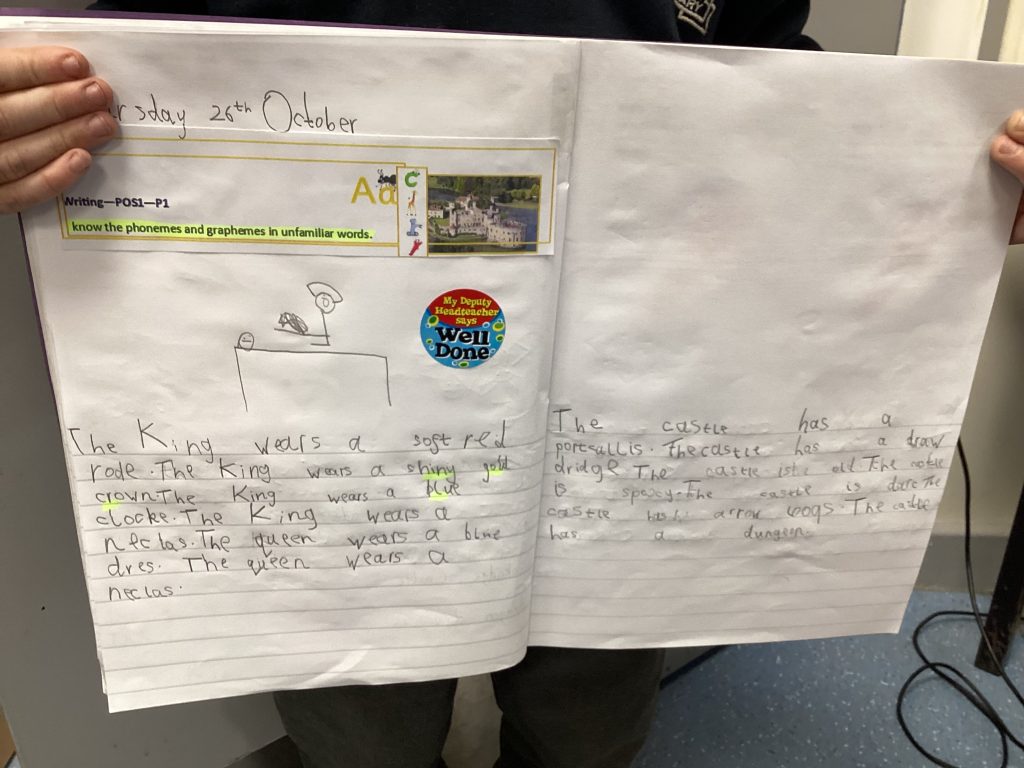 rsday 26th October
Aa
Writing—POS1—P1
know the phonemes and graphemes in unfamiliar words.
My Deputy
Headteacher
says
Well
Done
The King wears a soft red
rode. The King wears a shiny gold
crown. The King wears a blue
clocke. The King wears a
neclas. The queen wears a blue
dres. The queen wears a
neclas.
The castle has a
portsallis. The castle has a draw
dridge The castle is old The
is spoocy. The castle is darc The
castle has arrow The castle
has a dungeon.